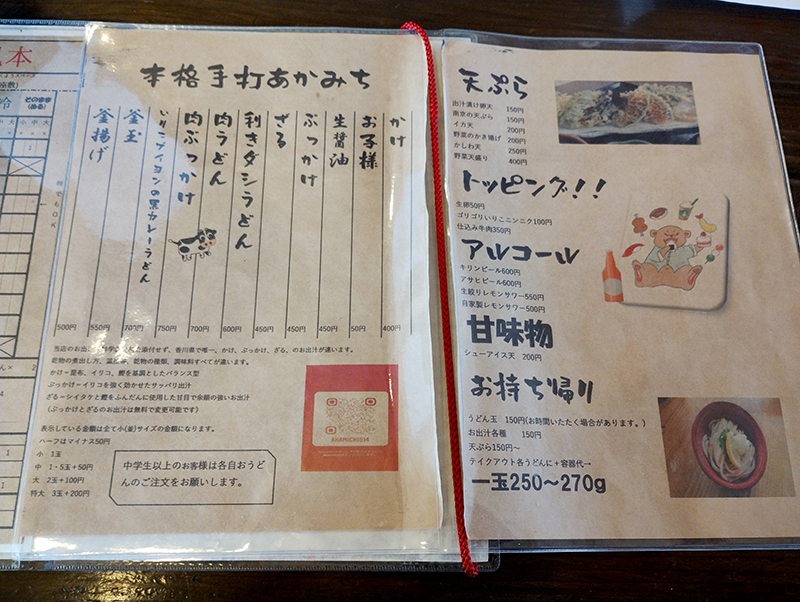 本
冷
そのまま
(ぬる)
本格手打あかみち
かけ 400円
お子様 50円
生醤油 450円
ぶっかけ 450円
ざる 450円
利きダシうどん 600円
肉うどん 700円
肉ぶっかけ 750円
いりこブイヨンの黒カレーうどん
釜玉 550円
釜揚げ 500円
添付せず、香川県で唯一、かけ、ぶっかけ、ざる、のお出汁が違います。
乾物の煮出し方、乾物の種類、調味料すべてが違います。
かけ=昆布、イリコ、鰹を基調としたバランス型
ぶっかけ=イリコを強く効かせたサッパリ出汁
ざる=シイタケと鰹をふんだんに使用した甘目で余韻の強いお出汁
(ぶっかけとざるのお出汁は無料で変更可能です)
表示している金額は全て小(並)サイズの金額になります。
ハーフはマイナス50円
小 1玉
中 1・5玉+50円
大 2玉+100円
特大 3玉+200円
中学生以上のお客様は各自おうどんのご注文をお願いします。
AKAMICHI554
天ぷら
出汁漬け卵天 150円
南京の天ぷら 150円
イカ天 200円
野菜のかき揚げ 200円
かしわ天 250円
野菜天盛り 400円
トッピング!!
生卵50円
ゴリゴリいりこニンニク100円
仕込み牛肉350円
アルコール
キリンビール600円
アサヒビール600円
生絞りレモンサワー550円
自家製レモンサワー500円
甘味物
シューアイス天 200円
お持ち帰り
うどん玉 150円(お時間いただく場合があります。)
お出汁各種 150円
天ぷら150円~
テイクアウト各うどんに+容器代→
一玉250~270g